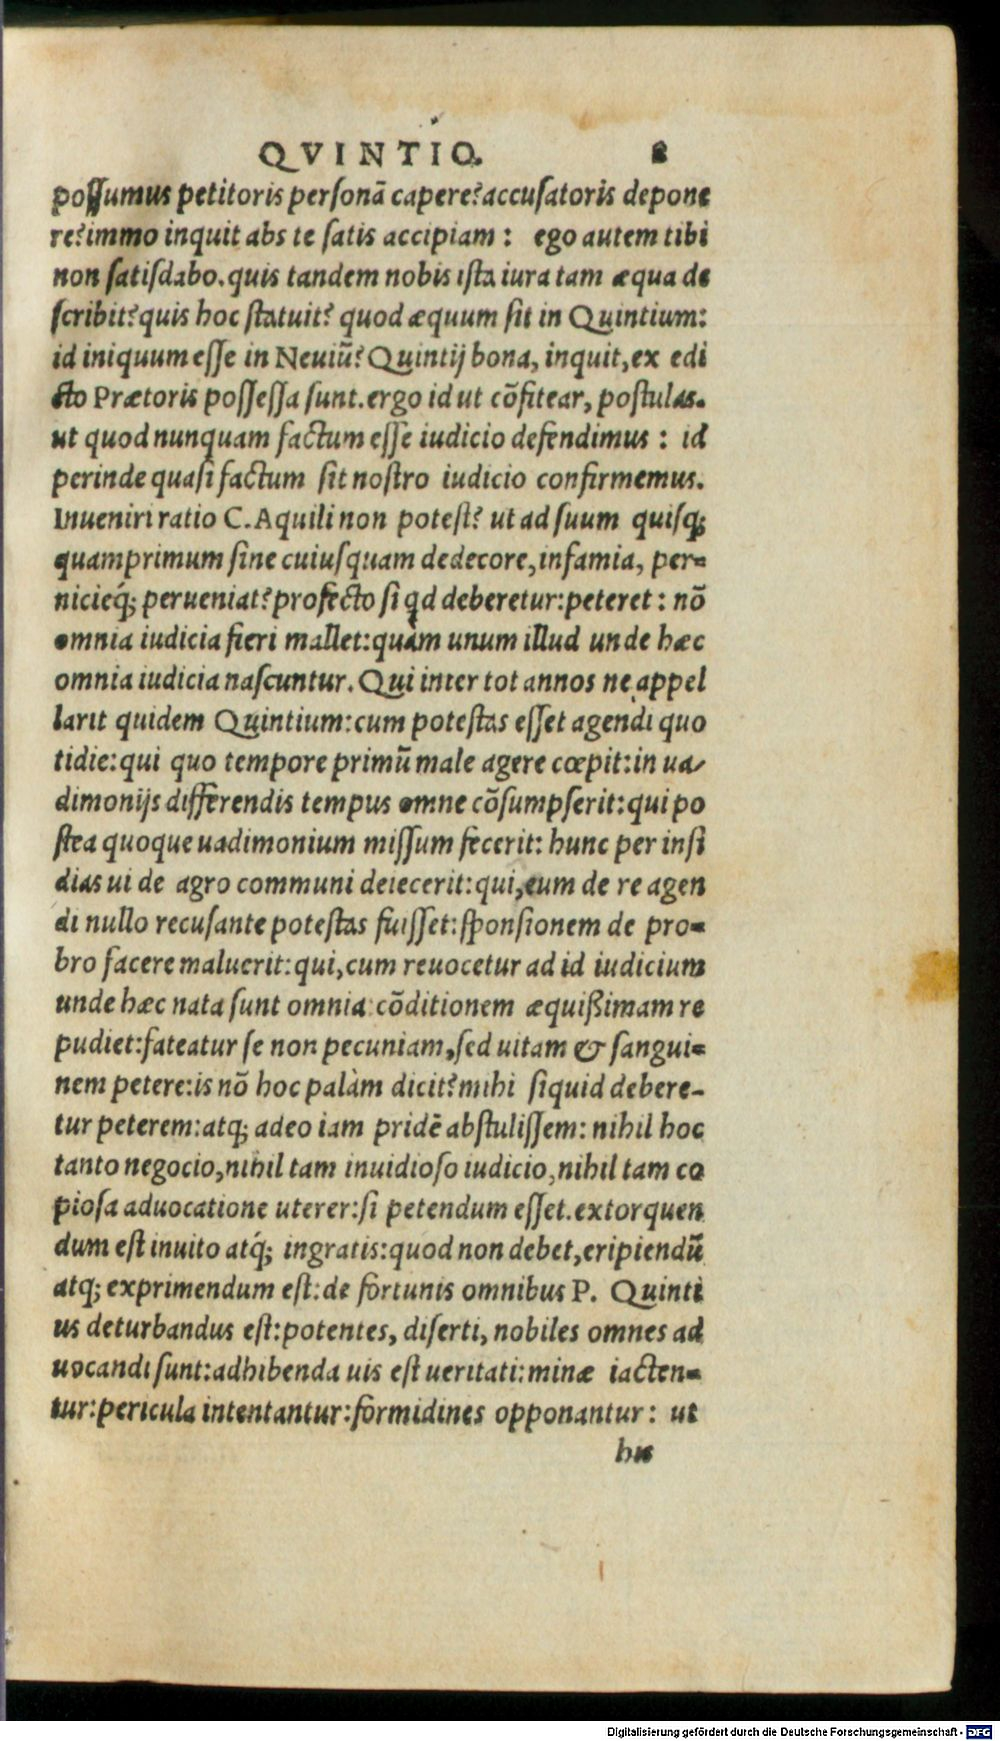 QVINTIO. 8
possumus petitoris personā capere?accusatoris depone
re?immo inquit abs te satis accipiam: ego autem tibi
non satisdabo.quis tandem nobis ista iura tam æqua de
scribit?quis hoc statuit? quod æquum sit in Quintium:
id iniquum esse in Neuiū?Quintij bona, inquit,ex edi
cto Prætoris possessa sunt.ergo id ut cōfitear, postulas.
ut quod nunquam factum esse iudicio defendimus: id
perinde quasi factum sit nostro iudicio confirmemus.
Inueniri ratio C.Aquili non potest? ut ad suum quisq;
quamprimum sine cuiusquam dedecore,infamia, per-
nicieq́; perueniat?profecto si qd deberetur:peteret: nō
omnia iudicia fieri mallet:quàm unum illud unde hæc
omnia iudicia nascuntur. Qui inter tot annos ne appel
larit quidem Quintium:cum potestas esset agendi quo
tidie:qui quo tempore primū male agere cœpit:in ua/
dimonijs differendis tempus omne cōsumpserit:qui po
stea quoque uadimonium missum fecerit: hunc per insi
dias ui de agro communi deiecerit:qui,eum de re agen
di nullo recusante potestas fuisset:sponsionem de pro-
bro facere maluerit:qui,cum reuocetur ad id iudicium
unde hæc nata sunt omnia cōditionem æquißimam re
pudiet:fateatur se non pecuniam,sed uitam & sangui-
nem petere:is nō hoc palàm dicit?mihi siquid debere-
tur peterem:atq; adeo iam pridē abstulissem: nihil hoc
tanto negocio,nihil tam inuidioso iudicio,nihil tam co
piosa aduocatione uterer:si petendum esset.extorquen
dum est inuito atq́; ingratis:quod non debet,eripiendū
atq; exprimendum est:de fortunis omnibus P. Quinti
us deturbandus est:potentes, diserti, nobiles omnes ad
uocandi sunt:adhibenda uis est ueritati:minæ iacten-
tur:pericula intentantur:formidines opponantur: ut
his
Digitalisierung gefördert durch die Deutsche Forschungsgemeinschaft - DFG